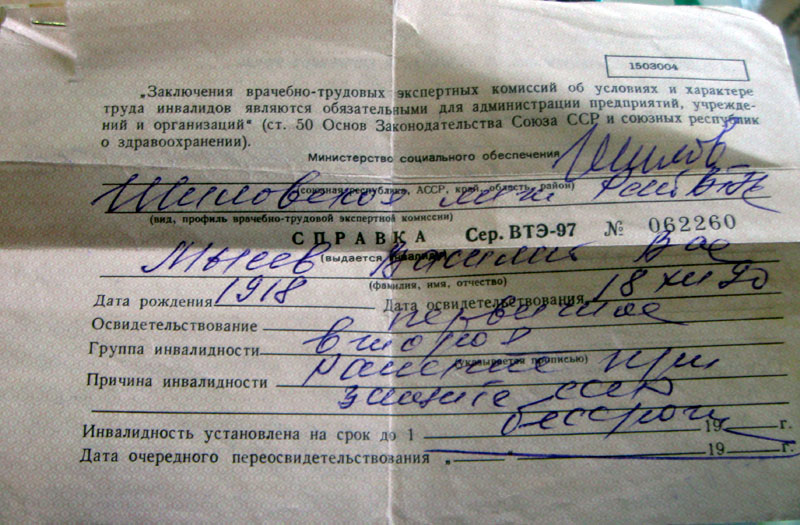 1503004
„Заключения врачебно-трудовых экспертных комиссий об условиях и характере
труда инвалидов являются обязательными для администрации предприятий, учрежде-
ний и организаций“ (ст. 50 Основ Законодательства Союза ССР и союзных республик
о здравоохранении).
Министерство социального обеспечения Шилов
(союзная республика, АССР, край, область, район)
Шиловская меж
(вид, профиль врачебно-трудовой экспертной комиссии)
СПРАВКА Сер. ВТЭ-97 № 062260
(выдается инвалиду)
Василий Вас
(фамилия, имя, отчество)
Дата рождения 1918 Дата освидетельствования 18 XII 90
Освидетельствование первичное
Группа инвалидности вторая
(указывается прописью)
Причина инвалидности ранение при
защите СССР
бессрочн
Инвалидность установлена на срок до 1 19 г.
Дата очередного переосвидетельствования „ “ 19 г.